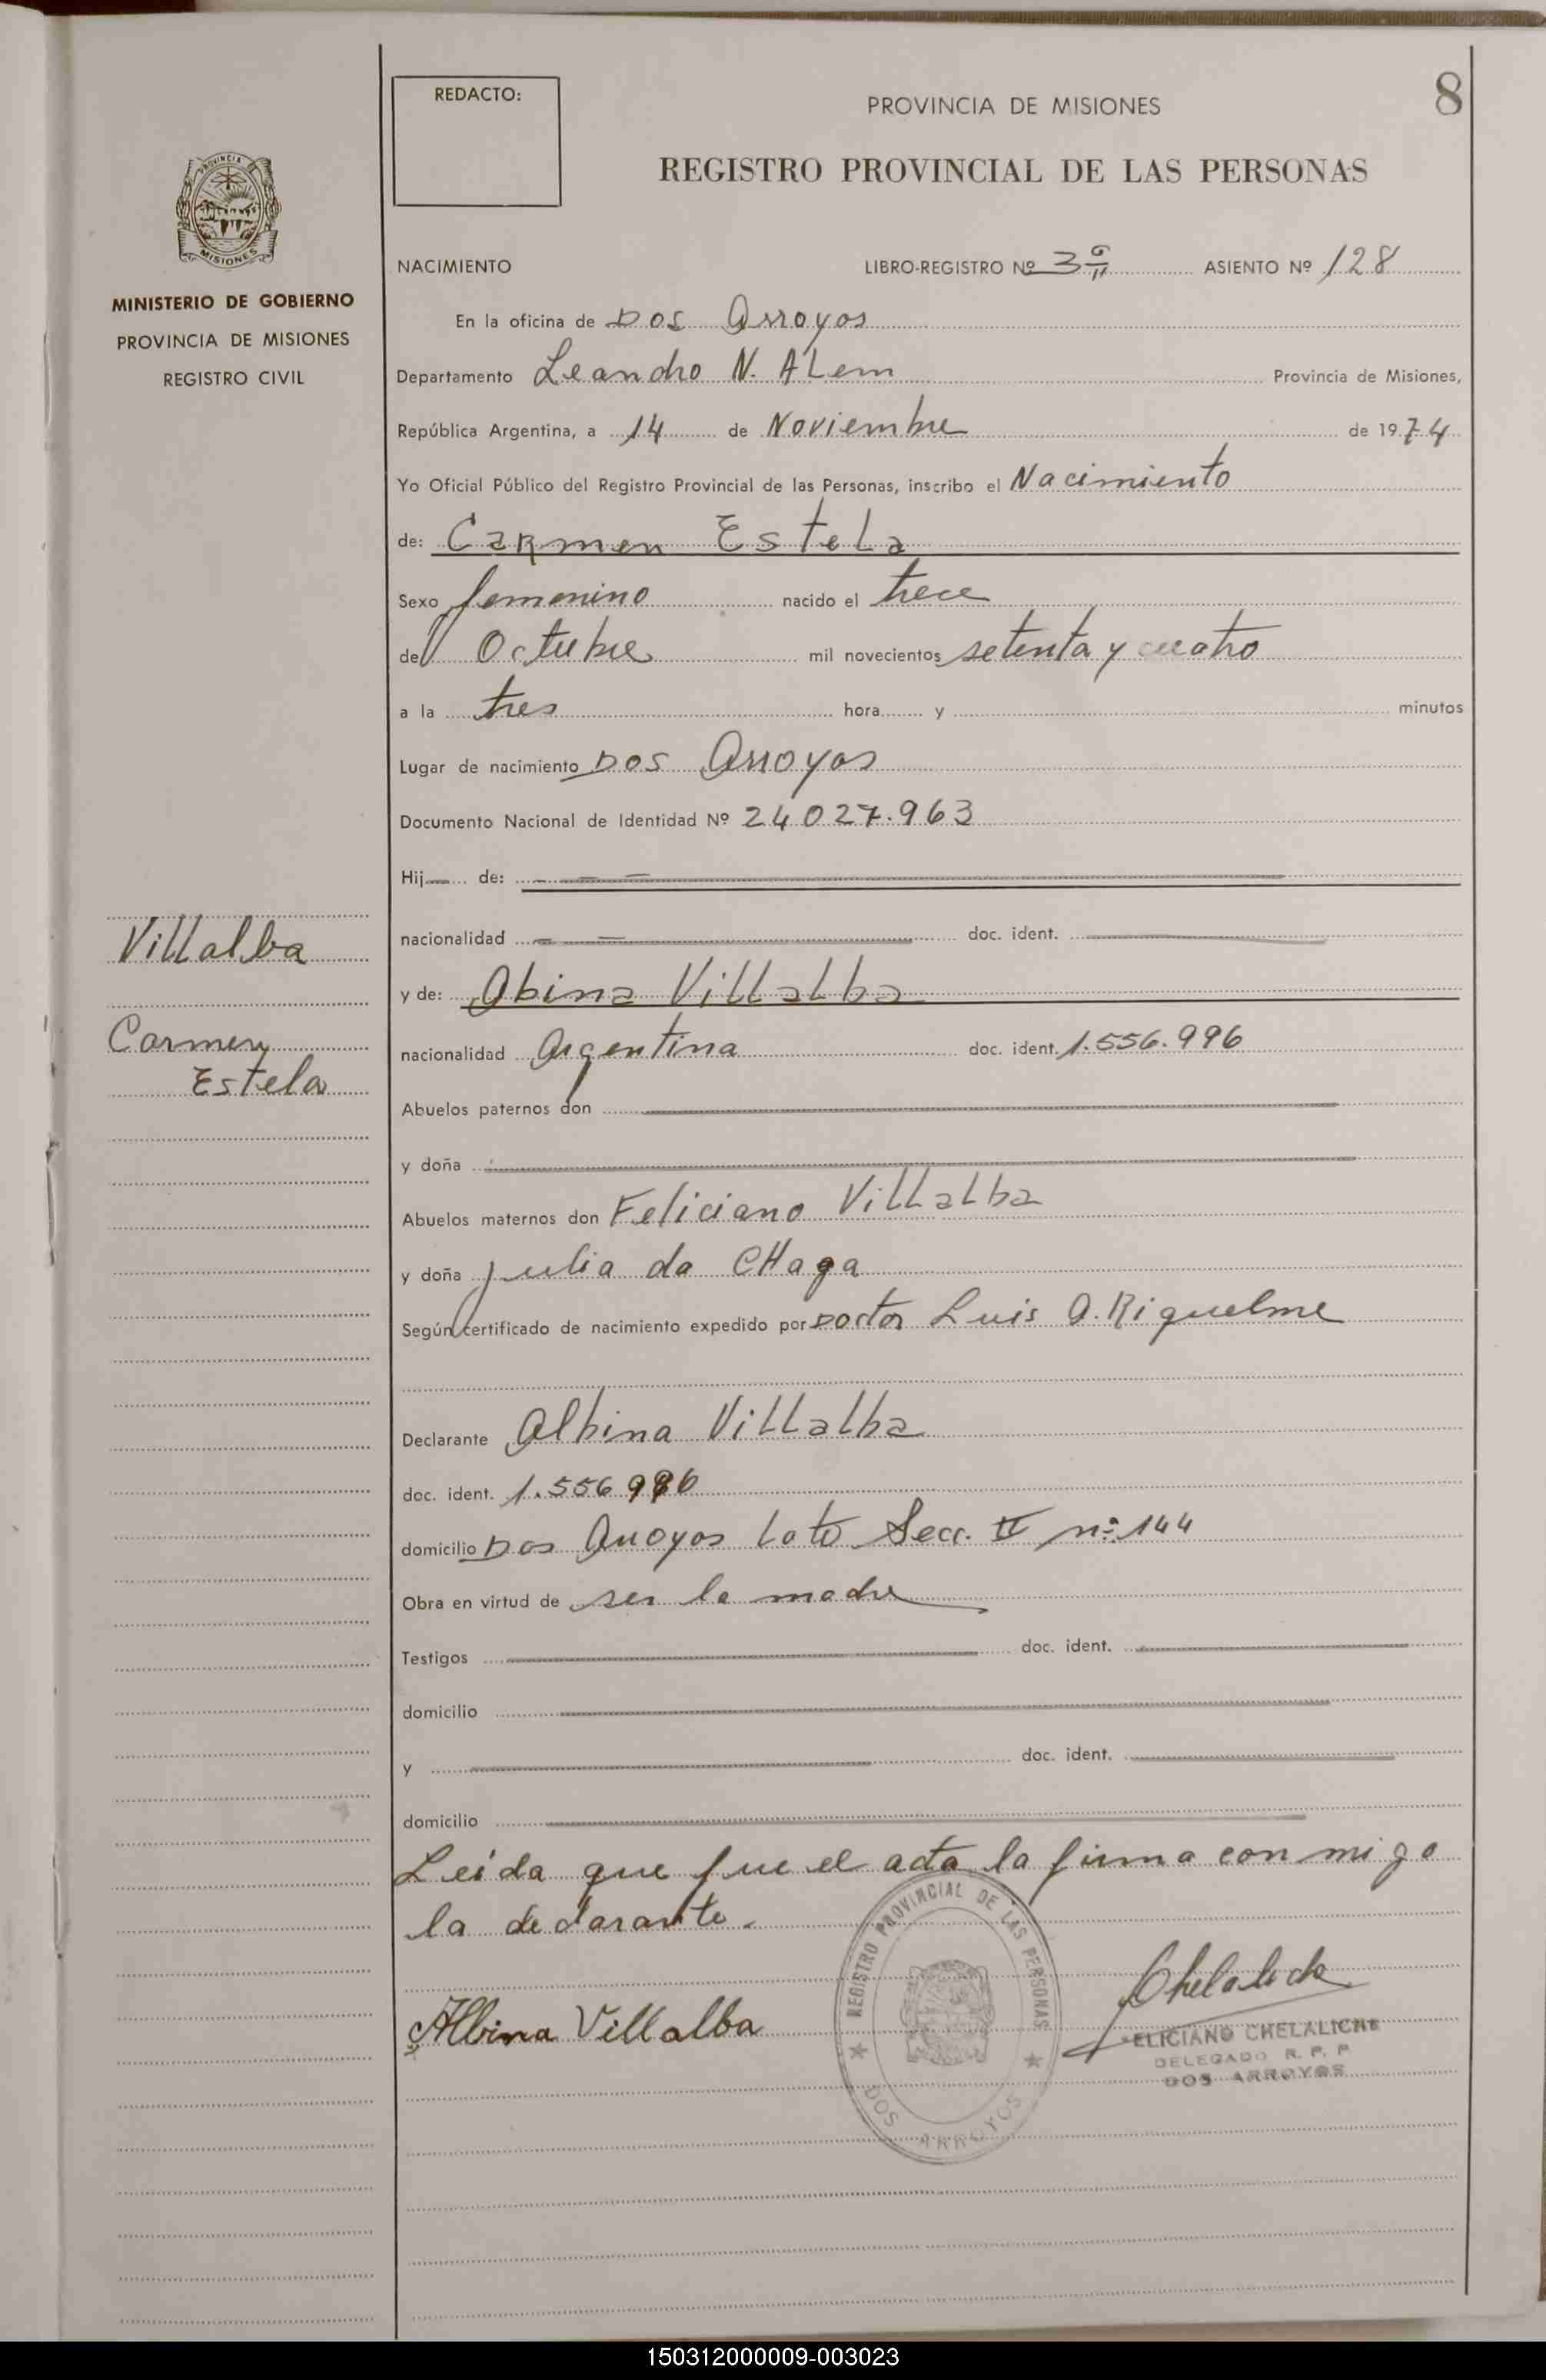 REDACTO:
PROVINCIA DE MISIONES
8
REGISTRO PROVINCIAL DE LAS PERSONAS
PROVINCIA DE
MISIONES
MINISTERIO DE GOBIERNO
PROVINCIA DE MISIONES
REGISTRO CIVIL
NACIMIENTO LIBRO-REGISTRO Nº 3 ASIENTO Nº 128
En la oficina de Dos Arroyos
Departamento Leandro N. ALem Provincia de Misiones,
República Argentina, a 14 de Noviembre de 1974
Yo Oficial Público del Registro Provincial de las Personas, inscribo el Nacimiento
de: Carmen Estela
Sexo femenino nacido el trece
de Octubre mil novecientos setenta y cuatro
a la tres hora y minutos
Lugar de nacimiento Dos Arroyos
Documento Nacional de Identidad Nº 24.027.963
Hij de:
nacionalidad doc. ident.
Villalba
y de: Abina Villalba
Carmen
Estela
nacionalidad Argentina doc. ident. 1.556.996
Abuelos paternos don
y doña
Abuelos maternos don Feliciano Villalba
y doña Julia da CHaga
Según certificado de nacimiento expedido por Doctor Luis A. Riquelme
Declarante Albina Villalba
doc. ident. 1.556 996
domicilio Dos Arroyos Lote Secc. II nº 144
Obra en virtud de ser la madre
Testigos doc. ident.
domicilio
y doc. ident.
domicilio
Leida que fue el acta la firma con migo
la declarante.
REGISTRO PROVINCIAL DE LAS PERSONAS
DOS ARROYOS
Albina Villalba
Chelaliche
FELICIANO CHELALICHE
DELEGADO R. P. P
DOS ARROYOS
150312000009-003023